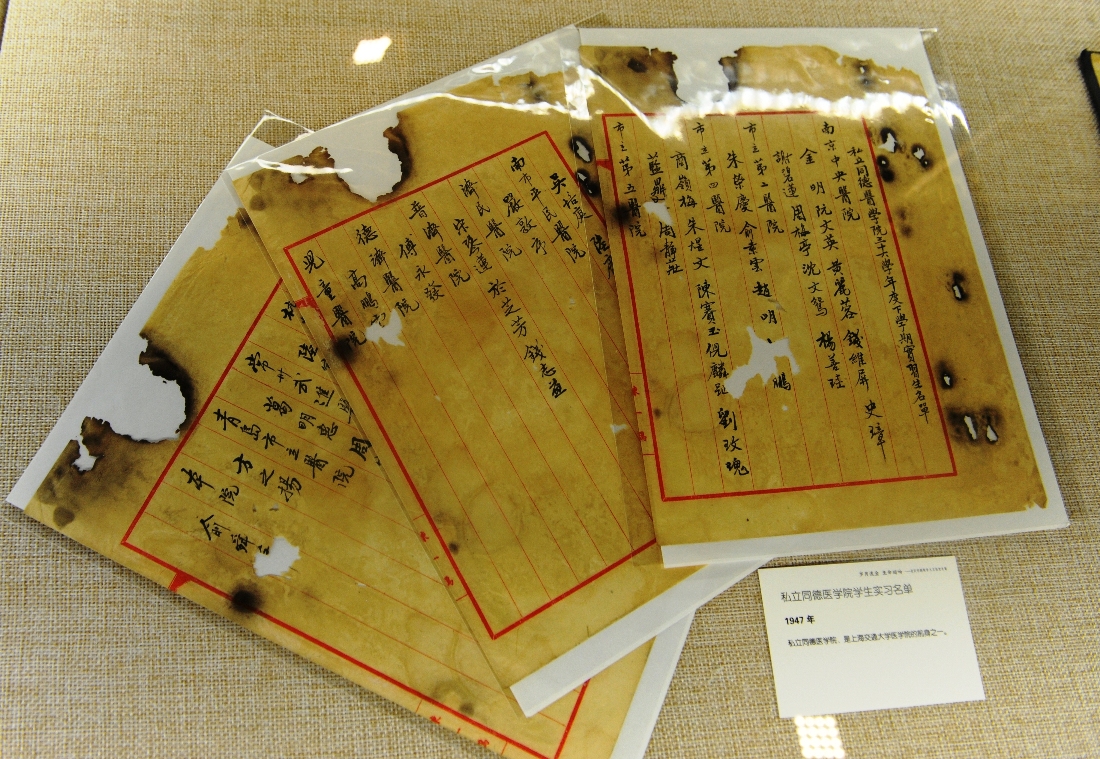 私立同德醫學院三十六學年度下學期實習生名單
南京中央醫院
金明 阮文英 黃麗蓉 錢維屏 史璋
謝碧蓮 周梅亭 沈文鴛 楊善珪
市立第二醫院
朱榮慶 俞素雲 趙明 鵬
市立第四醫院
商嶺梅 朱堤文 陳賽玉 倪麟趾 劉玫瑰
藍鼎 周靜茲
市立第五醫院
吳培庚 陸
南市平民醫院
嚴敦亭
濟民醫院
宋碧蓮 於芝芳 錢志益
普濟醫院
傅永發
德濟醫院
高鵬
兒童醫院
陸
常 武進
葛明忠 周
青島市立醫院
方之揚
本院
俞舜
私立同德医学院学生实习名单
1947 年
私立同德医学院，是上海交通大学医学院的前身之一。